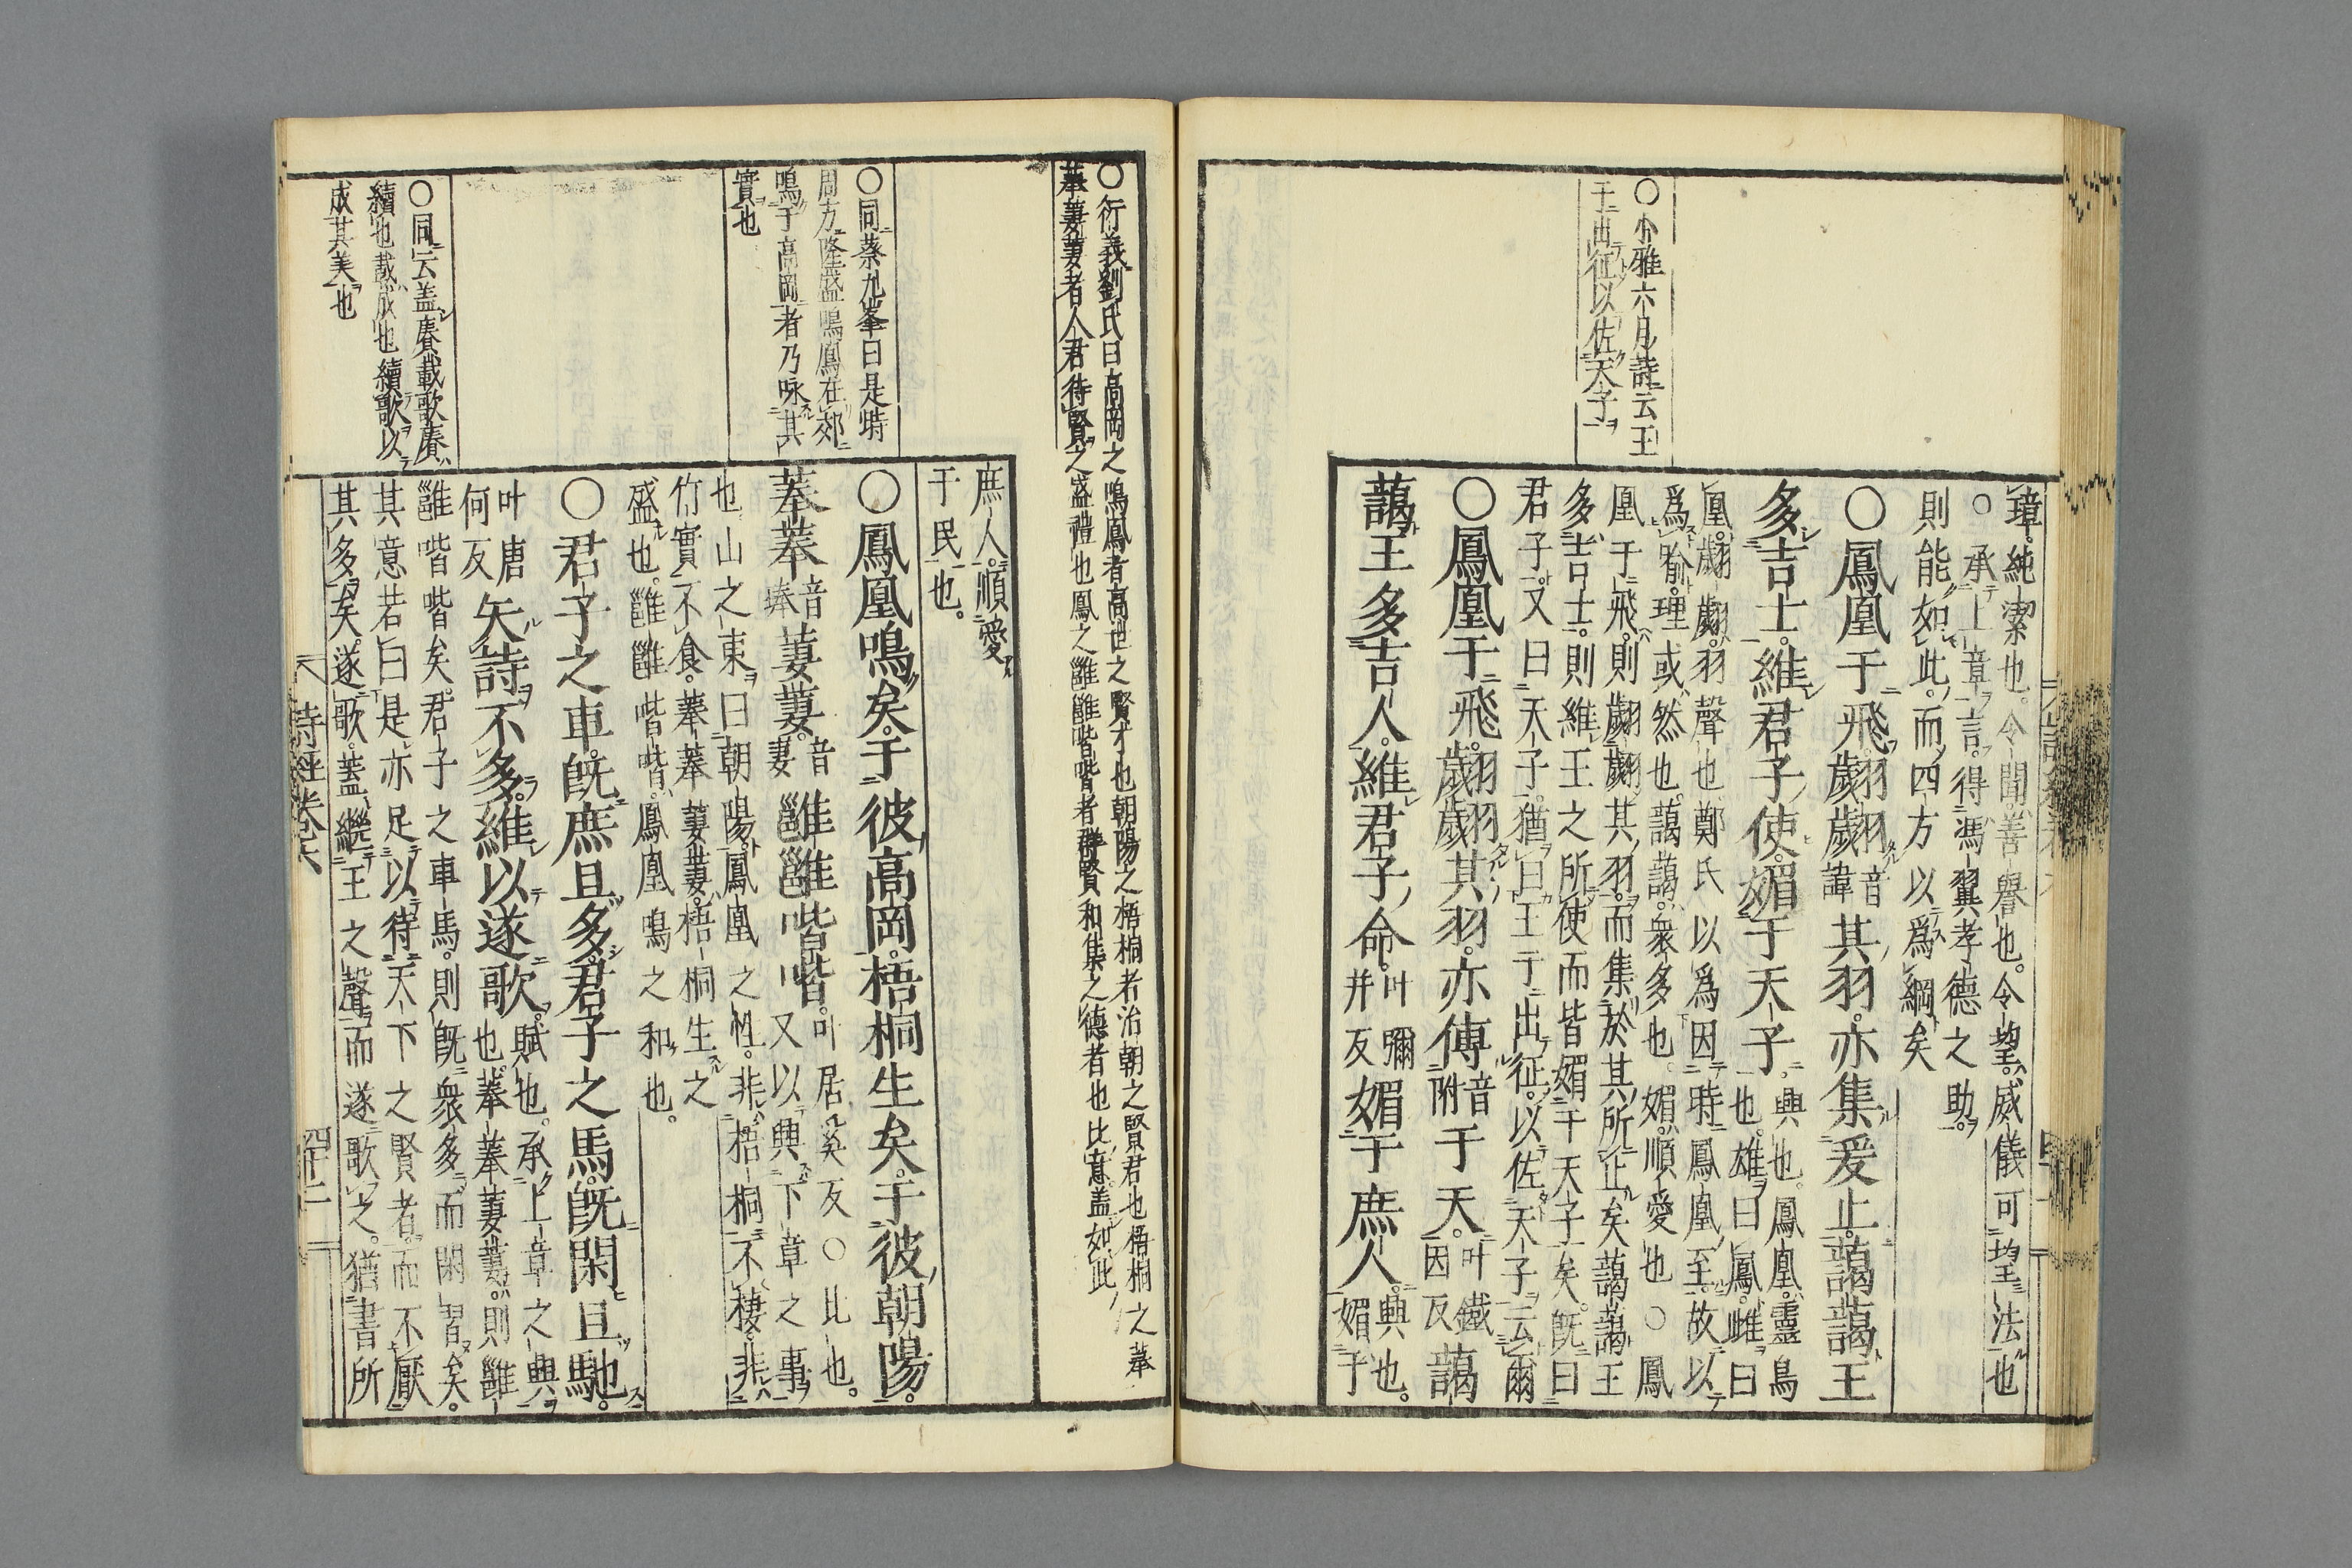 ○小雅六月詩云王
于出征以佐天子
璋。純潔也。令聞善譽也。令望。威儀可望法也
○承上章言。得馮翼孝德之助。
則能如此。而四方以爲綱矣
○鳳凰于飛。翽翽音諱其羽。亦集爰止。藹藹王
多吉士。維君子使。媚于天子。興也。鳳凰。靈鳥
也。雄曰鳳。雌曰
凰。翽翽。羽聲也鄭氏以爲因時鳳凰至。故以
爲喻。理或然也。藹藹。衆多也。媚。順愛也○鳳
凰于飛。則翽翽其羽。而集於其所止矣藹藹王
多吉士。則維王之所使而皆媚于天子矣。旣曰
君子。又曰天子。猶曰王于出征。以佐天子云爾
○鳳凰于飛。翽翽其羽。亦傅音附于天。叶鐵因反藹
藹王多吉人。維君子命。叶彌并反媚于庶人。興也。
媚于
○衍義劉氏曰高岡之鳴鳳者高世之賢才也朝陽之梧桐者治朝之賢君也梧桐之菶
菶萋萋者人君待賢之盛禮也鳳之雝雝喈喈者群賢和集之德者也比意盖如此
○同蔡九峯曰是時
周方隆盛鳴鳳在郊
鳴于高岡者乃咏其
實也
○同云盖賡載歌賡
續也載成也續歌以
成其美也
庶人。順愛
于民也。
○鳳凰鳴矣。于彼高岡。梧桐生矣。于彼朝陽。
菶菶音捧萋萋。音妻雝雝喈喈。叶居奚反○比也。
又以興下章之事
也山之東曰朝陽。鳳凰之性。非梧桐不棲。非
竹實不食。菶菶萋萋。梧桐生之
盛也。雝雝喈喈。鳳凰鳴之和也。
○君子之車。旣庶且多。君子之馬。旣閑且馳。
叶唐何反矢詩不多。維以遂歌。賦也。承上章之興
也。菶菶萋萋。則雝
雝喈喈矣。君子之車馬。則旣衆多而閑習矣。
其意若曰是亦足以待天下之賢者。而不厭
其多矣。遂歌。蓋繼王之聲而遂歌之。猶書所
詩經卷六
四十二